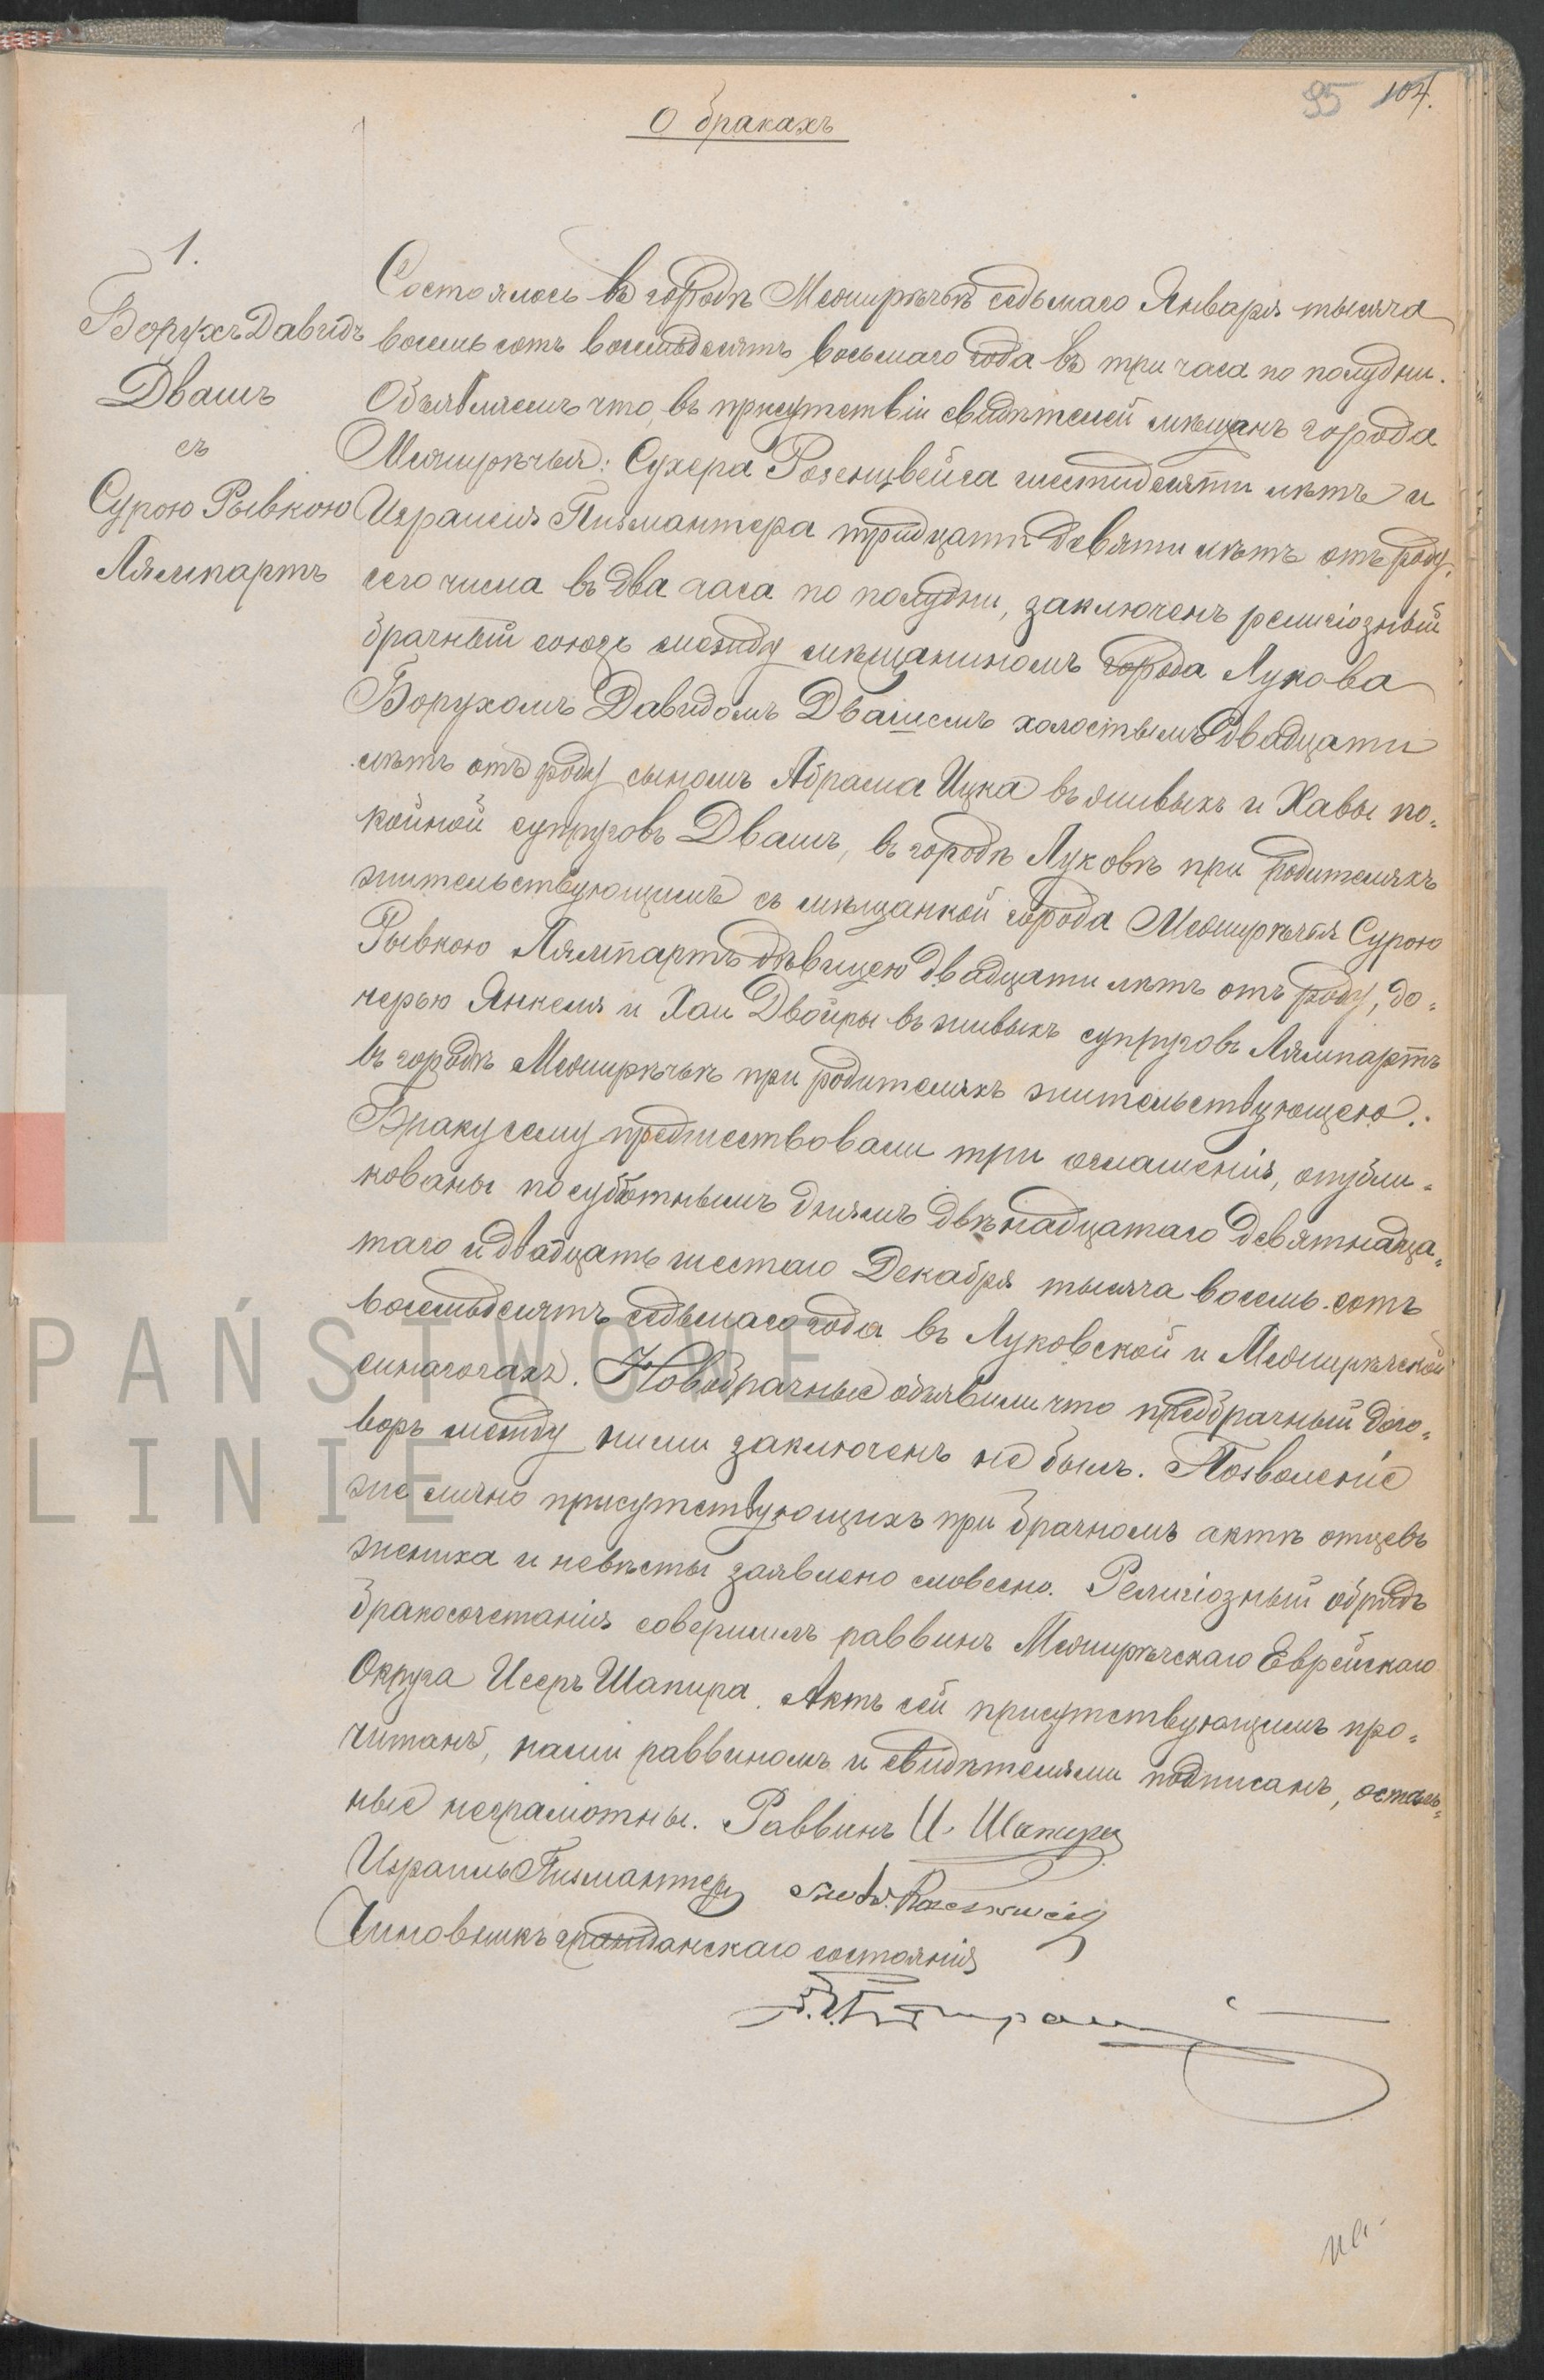 95 104.
О бракахъ
1.
Борухъ Давидъ
Двашъ
съ
Сурою Рывкою
Лямпартъ
Состоялось въ городѣ Межирѣчьѣ седьмаго Января тысяча
восемь сотъ восемьдесятъ восьмаго года въ три часа по полудни.
Объявляемъ что, въ присутствіи свидѣтелей мѣщанъ города
Межирѣчья: Сухера Розенцвейга шестидесяти лѣтъ и
Израиля Пизмантера тридцати девяти лѣтъ отъ роду,
сего числа въ два часа по полудни, заключенъ религіозный
брачный союзъ между мѣщаниномъ города Лукова
Борухомъ Давидомъ Двашемъ холостымъ двадцати
лѣтъ отъ роду сыномъ Абрама Ицка въ живыхъ и Хавы по-
койной супруговъ Двашъ, въ городѣ Луковѣ при родителяхъ
жительствующимъ съ мѣщанкой города Межирѣчья Сурою
Рывкою Лямпартъ дѣвицею двадцати лѣтъ отъ роду, до-
черью Янкеля и Хаи Двойры въ живыхъ супруговъ Лямпартъ
въ городѣ Межирѣчьѣ при родителяхъ жительствующею.
Браку сему предшествовали три оглашенія, опубли-
кованы по субботнымъ днямъ двѣнадцатаго девятнадца-
таго и двадцать шестаго Декабря тысяча восемь сотъ
восемьдесятъ седьмаго года въ Луковской и Межирѣчской
синагогахъ. Новобрачные объявили что предбрачный дого-
воръ между ними заключенъ не былъ. Позволеніе
же лично присутствующихъ при брачномъ актѣ отцевъ
жениха и невѣсты заявлено словесно. Религіозный обрядъ
бракосочетанія совершилъ раввинъ Межирѣчскаго Еврейскаго
Округа Исеръ Шапира. Актъ сей присутствующимъ про-
читанъ, нами раввиномъ и свидѣтелями подписанъ, осталь-
ные неграмотны. Раввинъ И. Шапира
Израиль Пизмантеръ
Чиновникъ гражданскаго состоянія
PAŃSTWOWE
LINIE